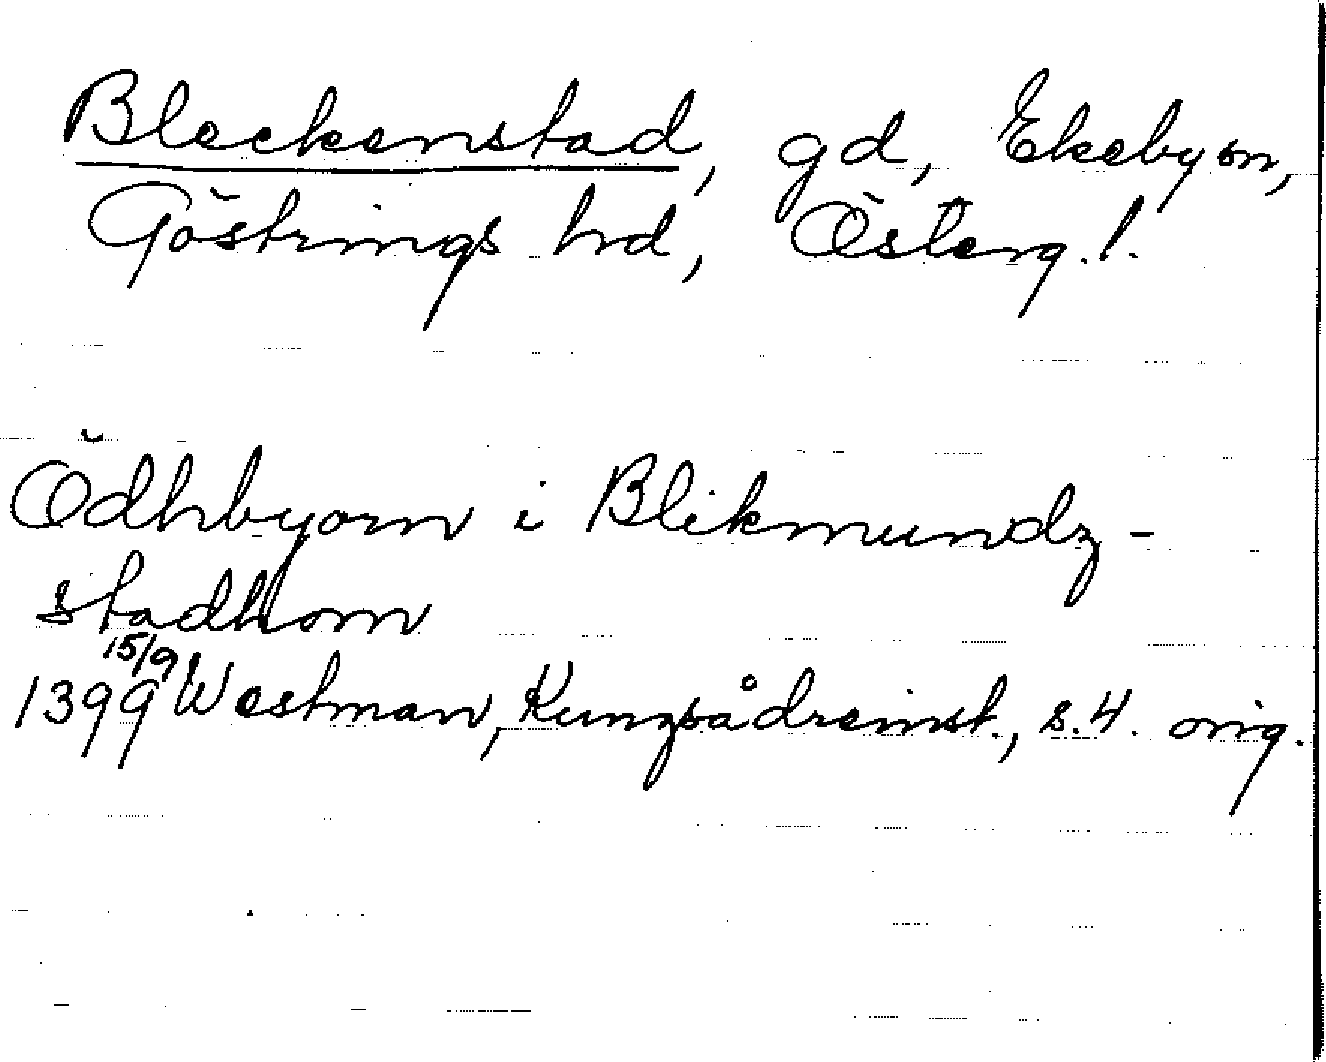 Bleckenstad, gd, Ekeby sn,
Göstrings hd, Österg. l.
Ödhbyorn i Blikmundz-
stadhom
15/9
1399 Westman, Kungsådreinst., s. 4. orig.